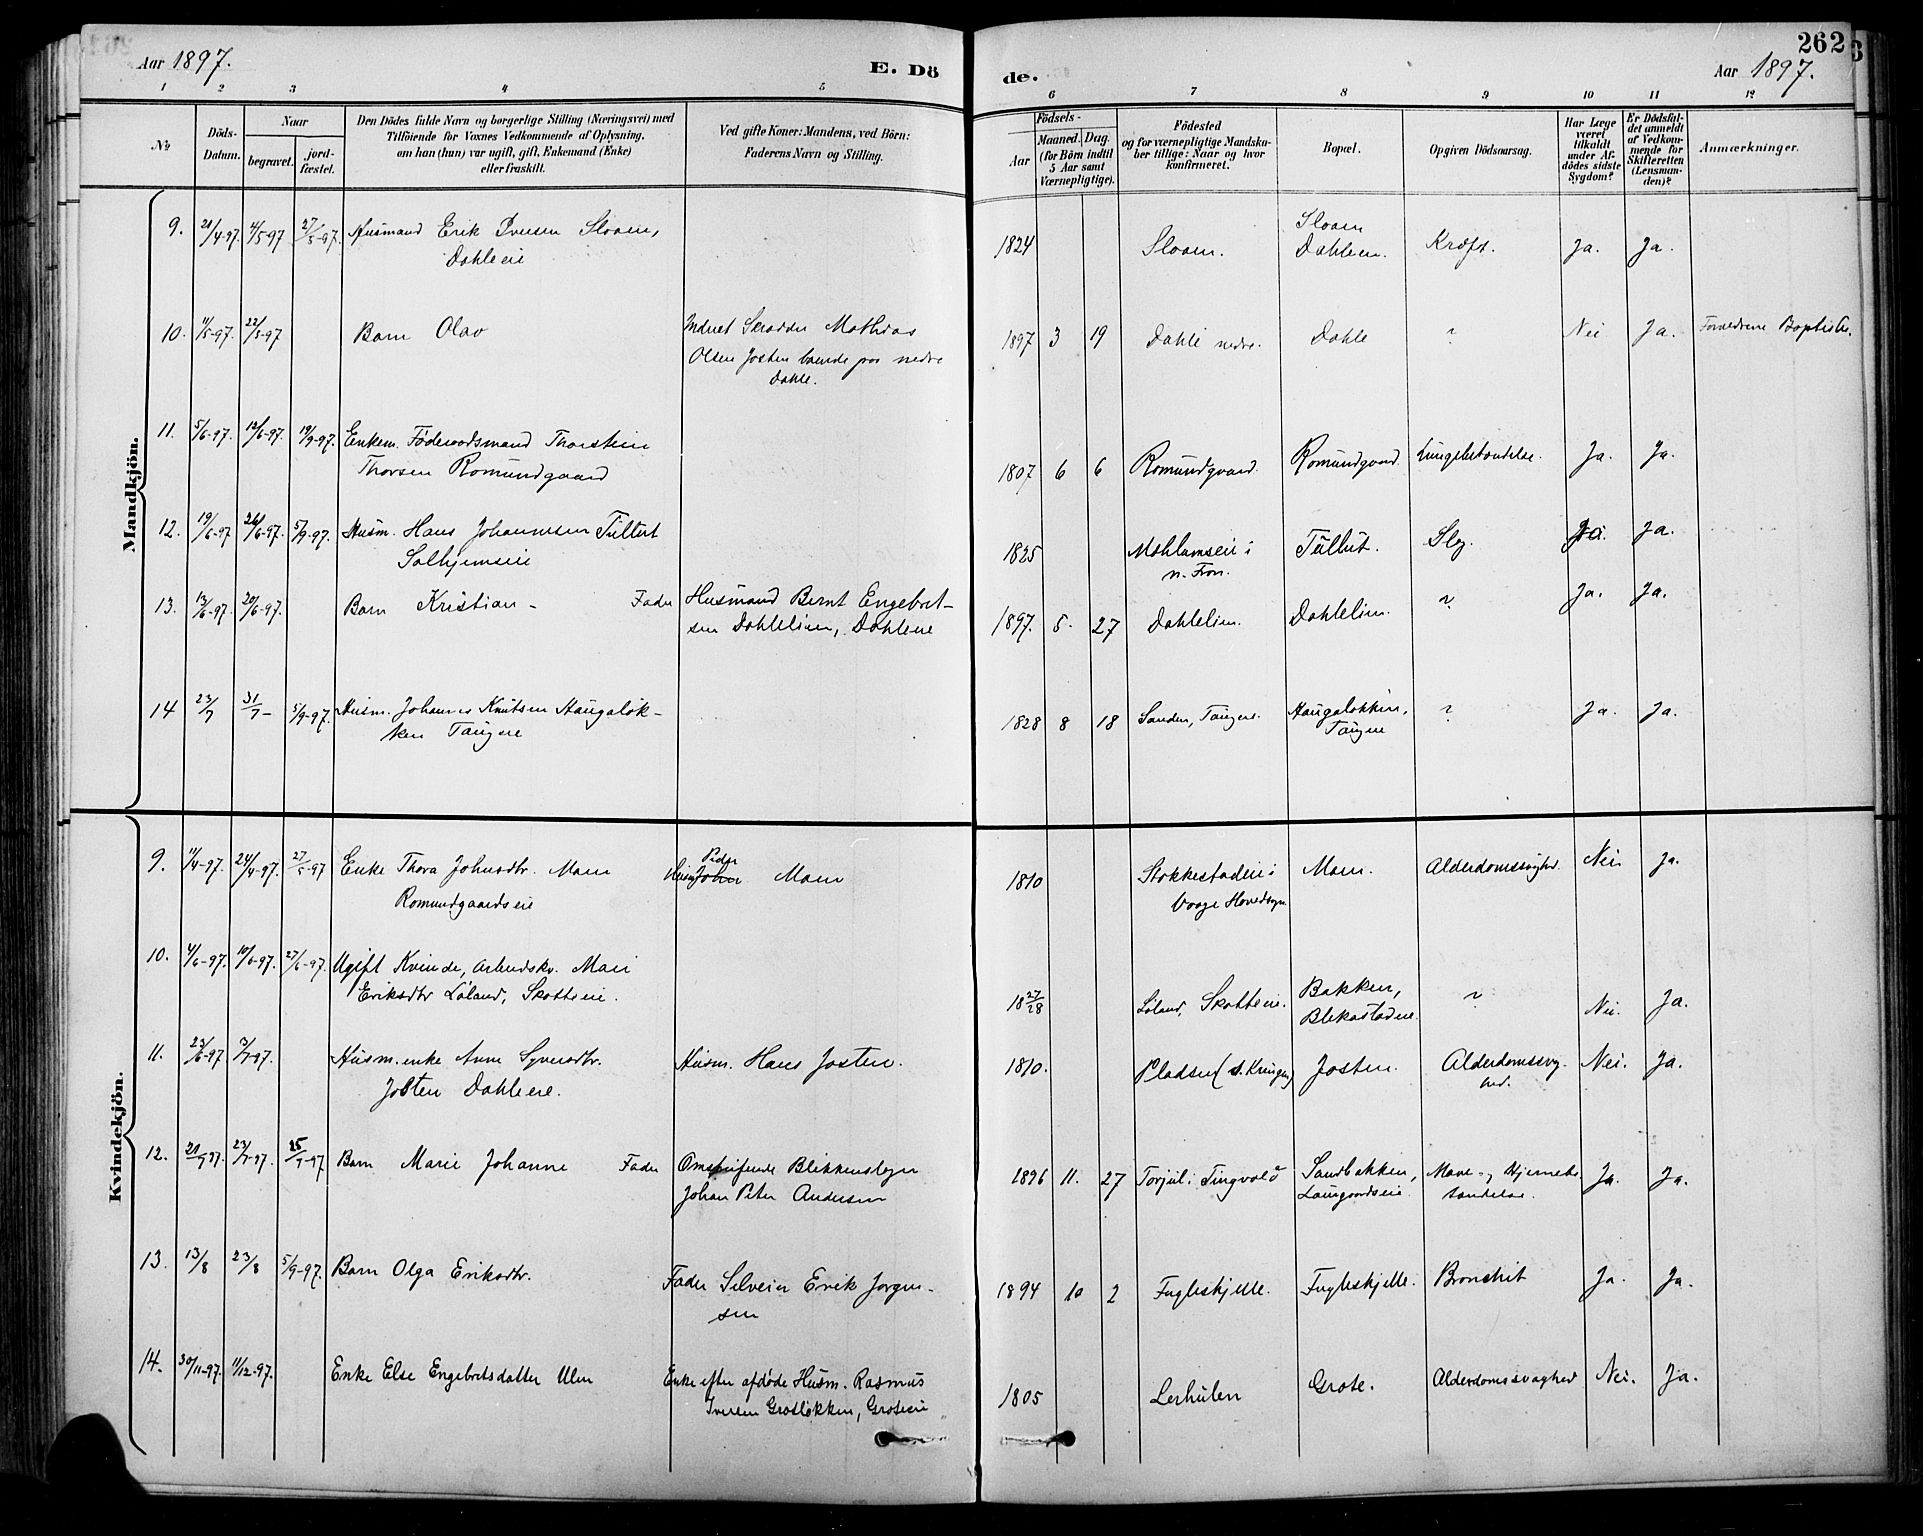 262
Aar 1897.
E. Dö
de.
Aar 1897.
1 2 3 4 5 6 7 8 9 10 11 12
No
Döds-Datum.
Naar
begravet.
jord-fæstet.
Den Dödes fulde Navn og borgerlige Stilling (Næringsvei) med
Tilföiende for Voxnes Vedkommende af Oplysning,
om han (hun) var ugift, gift, Enkemand (Enke)
eller fraskilt.
Ved gifte Koner: Mandens, ved Börn:
Faderens Navn og Stilling.
Födsels-
Aar
Maaned.
Dag.
(for Börn indtil
5 Aar samt
Værnepligtige).
Födested
og for værnepligtige Mandska-
ber tillige: Naar og hvor
konfirmeret.
Bopæl.
Opgiven Dödsaarsag.
Har Læge
været
tilkaldt
under Af-
dödes sidste
Sygdom?
Er Dödsfal-
det anmeldt
af Vedkom-
mende for
Skifteretten
(Lensman-
den)?
Anmærkninger.
Mandkjön.
9. 4/5-97 27/5-97. Husmand Erik Iversen Sloaen, 1824 Sloaen. Sloaen Kræft. Ja. Ja.
Dahleeie Dahleeie.
10. 11/5-97. 22/5-97 Barn Olav Indret Skrædder Mathias 1897 3 19 Dahle nedre. Dahle ? Nei Ja. Forældrene Baptister.
Olsen Josten boende paa nedre
Dahle.
11. 5/6-97. 12/6-97. 19/9-97. Enkem. Föderaadsmand Thorstein 1807 6 6 Romundgaard. Romundgaard. Lungebetændelse. Ja. Ja.
Thorsen Romundgaard
12. 19/6-97 26/6-97. 5/9-97. Husm. Hans Johannessen Tullut 1825 i Tullut. Slag. Ja.
Solhjemseie n. Fron.
13. 13/6-97. 20/6-97. Barn Kristian - Fader Husmand Bernt Engebret- 1897. 5. 27 Dahlelien. Dahlelien. ? Ja. Ja.
sen Dahlelien, Dahleeie
14 23/7 31/7- 5/9-97. Husm. Johannes Knutsen Haugaløk- 1828 8 18 Sanden, Haugaløkken, ? Ja. Ja.
ken
Kvindekjön.
9. 11/4-97. 24/4-97. 27/5-97 Enke Thora Johnsdtr. Moen Husm. John Peder Moen 1810 Stokkestadeie i Moen. Alderdomssvaghed. Nei Ja.
Romundgaardseie Vaage Hovedsogn.
10. 4/6-97. 10/6-97. 27/6-97. Ugift Kvinde, Arbeidskv. Mari 18 27/28 Løland, Skotteeie. Bakken, ? Nei. Ja.
Eriksdtr Løland, Skotteeie. Blekastadeie
11. 23/6-97 3/7-97. Husm. enke Anne Syversdtr. Husm. Hans Josten. 1810. Pladsen Josten. Alderdomssvag- Nei. Ja.
Josten Dahleeie. hed.
12. 23/7-97. 25/7-97 Barn Marie Johanne Fader Omstreifende Blikkenslager 1896 11. 27 Torjul i Tingvold Sandbakken, Mave- og Hjernebe- Ja. Ja.
Johan Peter Andersen Laurgaardseie. tændelse.
13. 13/8 23/8 5/9-97. Barn Olga Eriksdtr. Fader Selveier Erik Jørgen- 1894 10 2 Fugleskjelle. Fugleskjelle. Bronchit Ja. Ja.
sen
14. 30/11-97. 11/12-97. Enke Else Engebretsdatter Ulen Enke efter afdøde Husm. Rasmus 1805 Lerhulen Grote. Alderdomssvaghed Nei. Ja.
Iversen Grotløkken, Groteeie